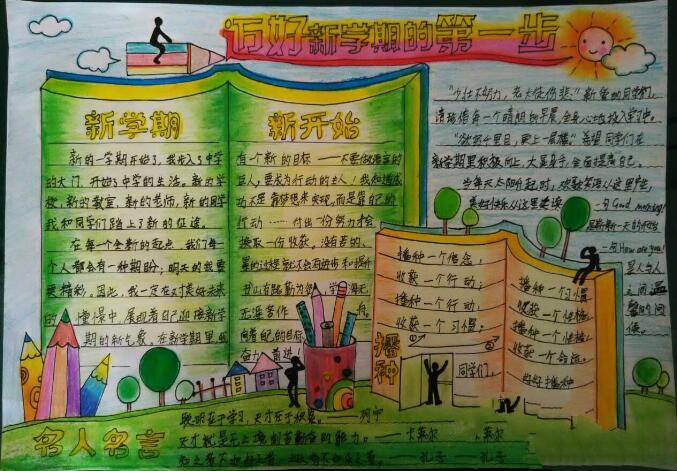 迈好新学期的第一步
新学期
新的一学期开始了，我步入了中学
的大门，开始了中学的生活。新的学
校，新的教室，新的老师，新的同学
我和同学们踏上了新的征途。
在每一个全新的起点，我们每一
个人都会有一种期盼；明天的我要
更精彩。因此，我一定在对美好未来
的憧憬中，展现着自己迎接新学
期的新气象。在新学期里
新开始
有个新的目标——不要做语言的
巨人，要成为行动的主人！我知道成
功不是靠梦想来实现，而是靠自己的
行动……付出一份努力才会
换取一份收获，没有苦的
登山有路勤为径，学海无
涯苦作舟。
向着自己的目标
奋力奋进！
"少壮不努力，老大徒伤悲！"新学的同学们，
请珍惜每一个晴朗的早晨，全身心地投入学习中。
"欲穷千里目，更上一层楼。"希望同学们在
新学期里积极向上，大显身手，全面提高自己。
当每天太阳升起时，欢歌笑语从这里
美好快乐从这里
一句Good morning!
一句How are you!
是人与人
之间温
馨的问
候。
播种一个信念，
收获一个行动；
播种一个行动，
收获一个习惯；
播种一个习惯，
收获一个性格；
播种一个性格，
收获一个命运。
同学们，
好好播种
播种
名人名言
聪明在于学习，天才在于积累。——列宁
天才就是无止境刻苦勤奋的能力。——卡莱尔